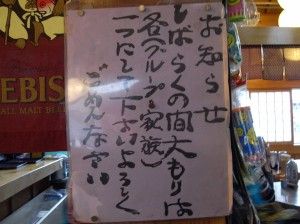 お知らせ
しばらくの間大もりは
各グループ（家族）
一つにして下さいよろしく
ごめんなさい
EBIS
ALL MALT BE